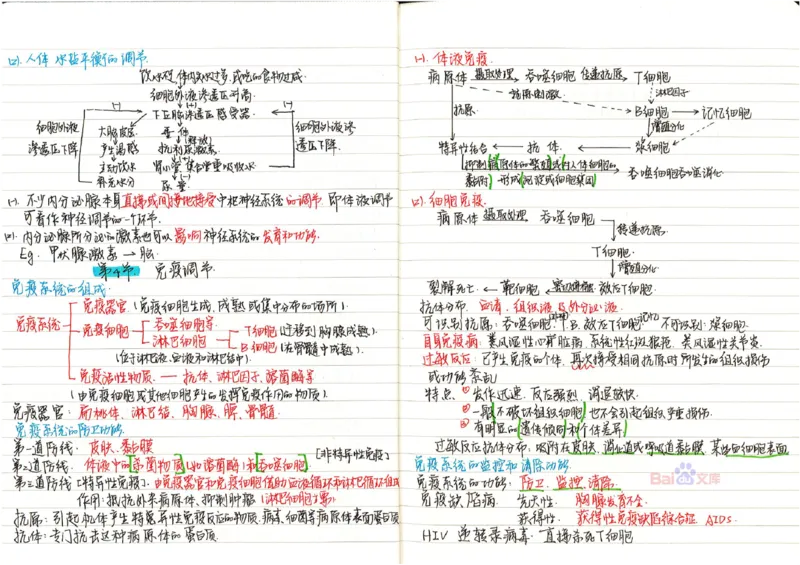 (四). 人体水盐平衡的调节
饮水不足、体内失水过多、或吃的食物过咸.
细胞外液渗透压升高
(-) 下丘脑渗透压感受器 (-)
细胞外液
渗透压下降
大脑皮层
产生渴感
主动饮水
补充水分
垂体
(释放)
抗利尿激素
肾小管 集合管重吸收水
尿量
细胞外液渗
透压下降
(一). 不少内分泌腺本身直接或间接地接受中枢神经系统的调节, 即体液调节
可看作神经调节的一个环节.
(二). 内分泌腺所分泌的激素也可以影响神经系统的发育和功能.
Eg. 甲状腺激素 → 脑.
第4节 免疫调节
免疫系统的组成.
免疫系统
免疫器官 (免疫细胞生成、成熟或集中分布的场所).
免疫细胞
吞噬细胞等
淋巴细胞
T细胞 (迁移到胸腺成熟).
B细胞 (在骨髓中成熟).
(位于淋巴液、血液和淋巴结中)
免疫活性物质 — 抗体、淋巴因子、溶菌酶等
(由免疫细胞或其他细胞产生的发挥免疫作用的物质).
免疫器官: 扁桃体、淋巴结、胸腺、脾、骨髓.
免疫系统的防卫功能.
第一道防线: 皮肤、黏膜
第二道防线: 体液中的[杀菌物质](如溶菌酶)和[吞噬细胞] [非特异性免疫].
第三道防线 [特异性免疫]. 由免疫器官和免疫细胞借助血液循环和淋巴循环组成
作用: 抵抗外来病原体, 抑制肿瘤 (淋巴细胞主要).
抗原: 引起机体产生特异性免疫反应的物质. 病毒、细菌等病原体表面蛋白质
抗体: 专门抗击这种病原体的蛋白质
(一). 体液免疫.
病原体 摄取处理 吞噬细胞 传递抗原 T细胞
抗原刺激 淋巴因子
抗原 B细胞 → 记忆细胞
增殖分化
特异性结合 ← 抗体 ← 浆细胞
抑制病原体的繁殖或对人体细胞的
黏附 形成沉淀或细胞集团 吞噬细胞吞噬消化
(四). 细胞免疫.
病原体 摄取处理 吞噬细胞
传递抗原.
T细胞
增殖分化
裂解死亡 ← 靶细胞 ← 密切接触 效应T细胞
抗体分布: 血清、组织液及外分泌液
可识别抗原: 吞噬细胞、T、B、效应T细胞、记忆 不可识别: 浆细胞
自身免疫病: 类风湿性心脏病、系统性红斑狼疮、类风湿性关节炎.
过敏反应: 已产生免疫的个体, 再次接受相同抗原时所发生的组织损伤
或功能紊乱
特点: ① 发作迅速、反应强烈、消退较快.
② 一般不破坏组织细胞, 也不会引起组织严重损伤.
③ 有明显的遗传倾向和个体差异
过敏反应抗体分布: 吸附在皮肤、消化道或呼吸道黏膜、某些血细胞表面
免疫系统的监控和清除功能
免疫系统的功能: 防卫、监控、清除.
免疫缺陷病: 先天性: 胸腺发育不全.
获得性: 获得性免疫缺陷综合征 AIDS.
HIV 逆转录病毒. 直接杀死T细胞
Bai 文库